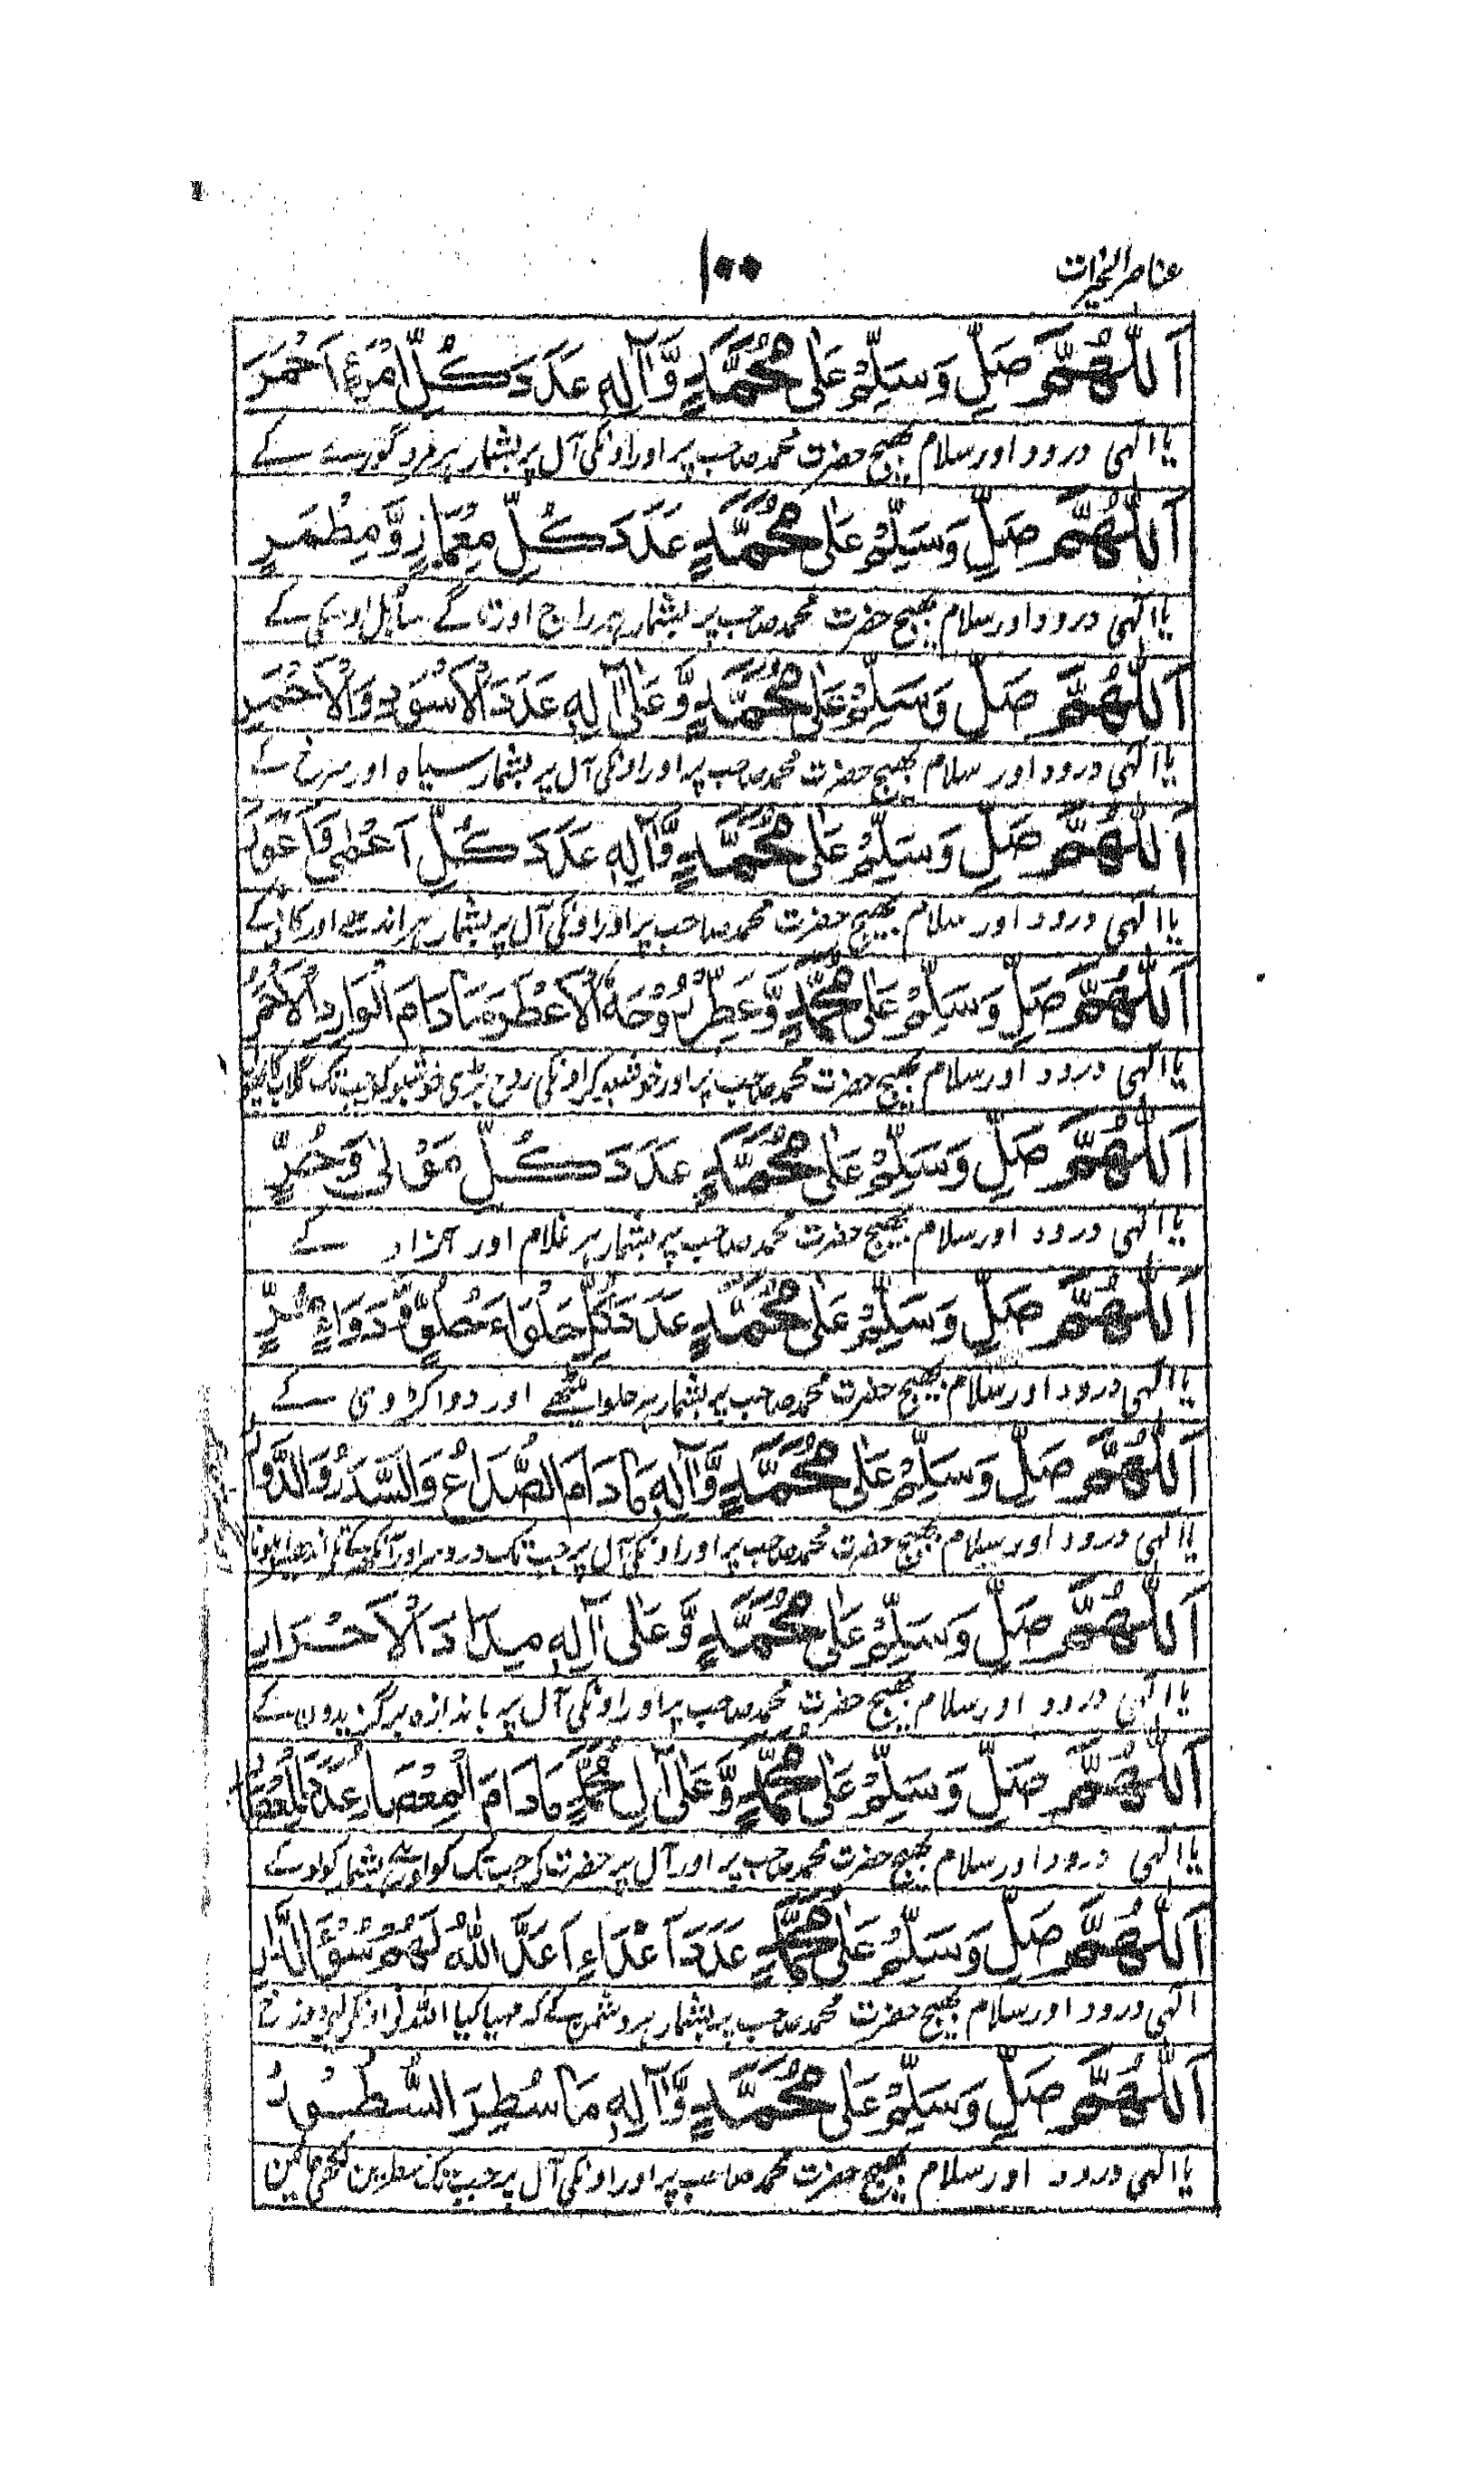 عناصر الخیرات
١٠٠
اَللّٰهُمَّ صَلِّ وَسَلِّمْ عَلٰى مُحَمَّدٍ وَّاٰلِهٖ عَدَدَ كُلِّ امْرَءٍ اَحْمَرَ
یا الٰہی درود اور سلام بھیج حضرت محمد صاحب پر اور اونکی آل پر بشمار ہر مرد گورے کے
اَللّٰهُمَّ صَلِّ وَسَلِّمْ عَلٰى مُحَمَّدٍ عَدَدَ كُلِّ مِعْمَارٍ وَّمِطْمَرٍ
یا الٰہی درود اور سلام بھیج حضرت محمد صاحب پر بشمار ہر راج اور تاگے ساہل اوسکی کے
اَللّٰهُمَّ صَلِّ وَسَلِّمْ عَلٰى مُحَمَّدٍ وَّعَلٰى اٰلِهٖ عَدَدَ الْاَسْوَدِ وَالْاَحْمَرِ
یا الٰہی درود اور سلام بھیج حضرت محمد صاحب پر اور اونکی آل پر بشمار سیاہ اور سرخ کے
اَللّٰهُمَّ صَلِّ وَسَلِّمْ عَلٰى مُحَمَّدٍ وَّاٰلِهٖ عَدَدَ كُلِّ اَعْمٰى وَاَعْوَرَ
یا الٰہی درود اور سلام بھیج حضرت محمد صاحب پر اور اونکی آل پر بشمار ہر اندھے اور کانے کے
اَللّٰهُمَّ صَلِّ وَسَلِّمْ عَلٰى مُحَمَّدٍ وَّعَطِّرْ رُوْحَهُ الْاَعْطَرَ مَا دَامَ الْوَارِدُ الْاَحْمَرُ
یا الٰہی درود اور سلام بھیج حضرت محمد صاحب پر اور خوشبو کر اونکی روح بڑی خوشبو کو جب تک گلاب کا
اَللّٰهُمَّ صَلِّ وَسَلِّمْ عَلٰى مُحَمَّدٍ عَدَدَ كُلِّ مَوْلٰى وَحُرٍّ
یا الٰہی درود اور سلام بھیج حضرت محمد صاحب پر بشمار ہر غلام اور آزاد کے
اَللّٰهُمَّ صَلِّ وَسَلِّمْ عَلٰى مُحَمَّدٍ عَدَدَ كُلِّ حَلْوَاءَ حُلْوٍ وَّدَوَاءٍ مُّرٍّ
یا الٰہی درود اور سلام بھیج حضرت محمد صاحب پر بشمار ہر حلوا میٹھے اور دوا کڑوی کے
اَللّٰهُمَّ صَلِّ وَسَلِّمْ عَلٰى مُحَمَّدٍ وَّاٰلِهٖ مَا دَامَ الصُّدَاعُ وَالسَّدَرُ وَالدُّوَارُ
یا الٰہی درود اور سلام بھیج حضرت محمد صاحب پر اور اونکی آل پر جب تک درد سر اور آنکھ
اَللّٰهُمَّ صَلِّ وَسَلِّمْ عَلٰى مُحَمَّدٍ وَّعَلٰى اٰلِهٖ مِدَادَ الْاَحْرَارِ
یا الٰہی درود اور سلام بھیج حضرت محمد صاحب پر اور اونکی آل پر باندازہ برگزیدون کے
اَللّٰهُمَّ صَلِّ وَسَلِّمْ عَلٰى مُحَمَّدٍ وَّعَلٰى اٰلِ مُحَمَّدٍ مَا دَامَ الْمِعْصَارُ
یا الٰہی درود اور سلام بھیج حضرت محمد صاحب پر اور آل پر حضرت کی جب تک بشمار کولو کے
اَللّٰهُمَّ صَلِّ وَسَلِّمْ عَلٰى مُحَمَّدٍ عَدَدَ اَعْدَاءٍ اَعَدَّ اللّٰهُ لَهُمْ سُوْٓءَ الدَّارِ
الٰہی درود اور سلام بھیج حضرت محمد صاحب پر بشمار ہر دشمن کے کہ مہیا کیا اللہ نی اونکی لیے دوزخ
اَللّٰهُمَّ صَلِّ وَسَلِّمْ عَلٰى مُحَمَّدٍ وَّاٰلِهٖ مَا سُطِرَ السُّطُوْرُ
یا الٰہی درود اور سلام بھیج حضرت محمد صاحب پر اور اونکی آل پر جب تک سطرین لکھی جائین